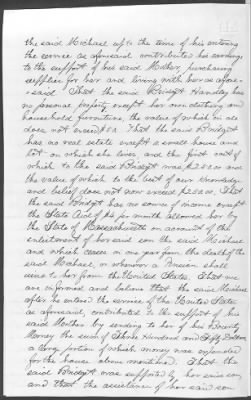 the said Michael up to the time of his entering
the service as aforesaid contributed his earnings
to the support of his said Mother, purchasing
supplies for her and living with her as afore-
said That the said Bridget Handley has
no personal property except her own clothing and
household furniture, the value of which in all
does not exceed $ That the said Bridget
has no real estate except a small house and
lot on which she lives and the first cost of
which to the said Bridget was $ and
the value of which to the best of our knowledge
and belief does not now exceed $ That
the said Bridget has no source of income except
the State Aid of $4 per month allowed her by
the State of Massachusetts on account of the
enlistment of her said son the said Michael
and which ceases in one year from the death of the
said Michael, or whenever a Pension shall
issue to her from the United States. That we
are informed and believe that the said Michael
after he entered the service of the United States
as aforesaid, contributed to the support of his
said Mother by sending to her of his Bounty
Money the sum of Three Hundred and Fifty Dollars
a large portion of which money was expended
for the house above mentioned. That the
said Bridget was supported by her said son
and that the assistance of her said son